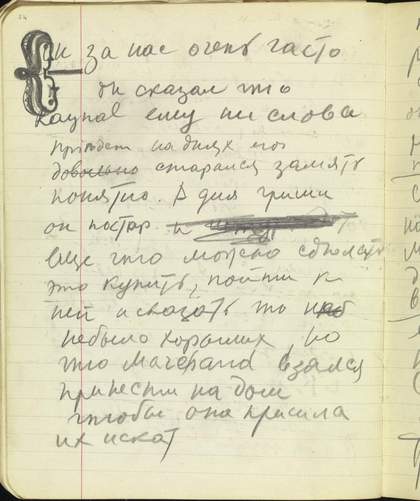 и за нас очень часто
он сказал что
ему ни слова
придет на днях его
довольно старался замять
понятно. В дня
он постар и
еще что можно сделать
это купить, пойти к
ней и сказать что
небыло хороших, но
что взялся
принести на дом
чтобы она просила
их искат